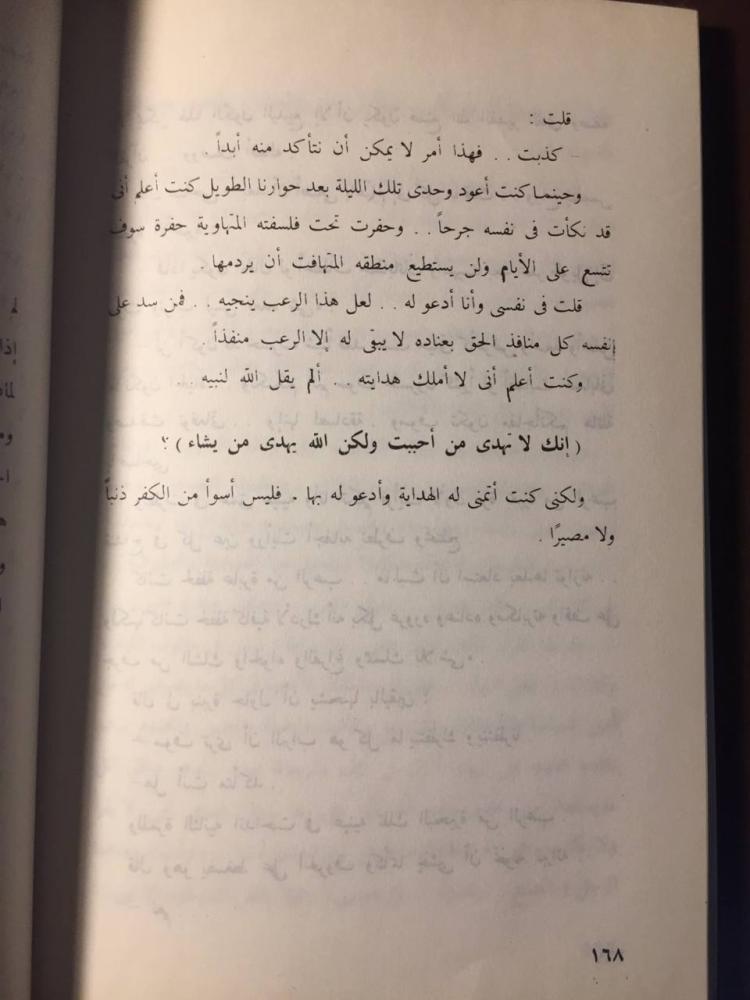 قلت :
- كذبت . . فهذا أمر لا يمكن أن نتأكد منه أبداً .
وحينما كنت أعود وحدى تلك الليلة بعد حوارنا الطويل كنت أعلم أنى
قد نكأت فى نفسه جرحاً . . وحفرت تحت فلسفته المتهاوية حفرة سوف
تتسع على الأيام ولن يستطيع منطقه المتهافت أن يردمها .
قلت فى نفسى وأنا أدعو له . . لعل هذا الرعب ينجيه . . فمن سد على
نفسه كل منافذ الحق بعناده لا يبقى له إلا الرعب منفذاً .
وكنت أعلم أنى لا أملك هدايته . . ألم يقل الله لنبيه . . .
( إنك لا تهدى من أحببت ولكن الله يهدى من يشاء ) ؟
ولكنى كنت أتمنى له الهداية وأدعو له بها . فليس أسوأ من الكفر ذنباً
ولا مصيرًا .
١٦٨